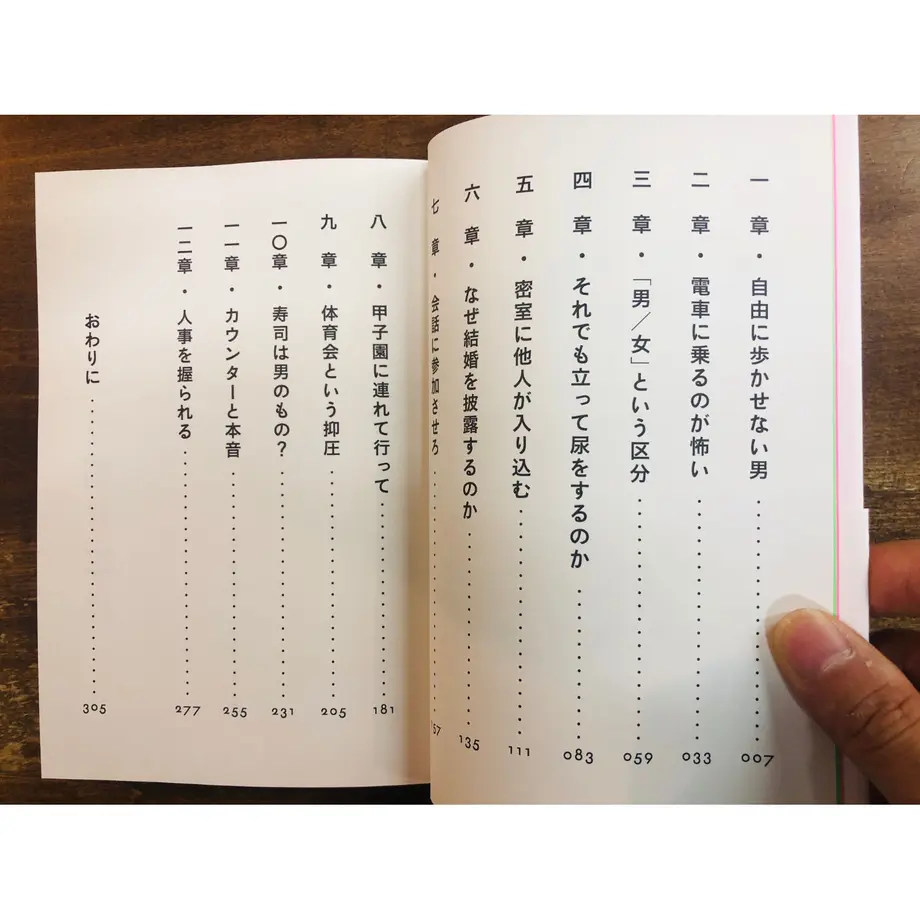 一章・自由に歩かせない男 007
二章・電車に乗るのが怖い 033
三章・「男／女」という区分 059
四章・それでも立って尿をするのか 083
五章・密室に他人が入り込む 111
六章・なぜ結婚を披露するのか 135
七章・会話に参加させろ 157
八章・甲子園に連れて行って 181
九章・体育会という抑圧 205
一〇章・寿司は男のもの？ 231
一一章・カウンターと本音 255
一二章・人事を握られる 277
おわりに 305